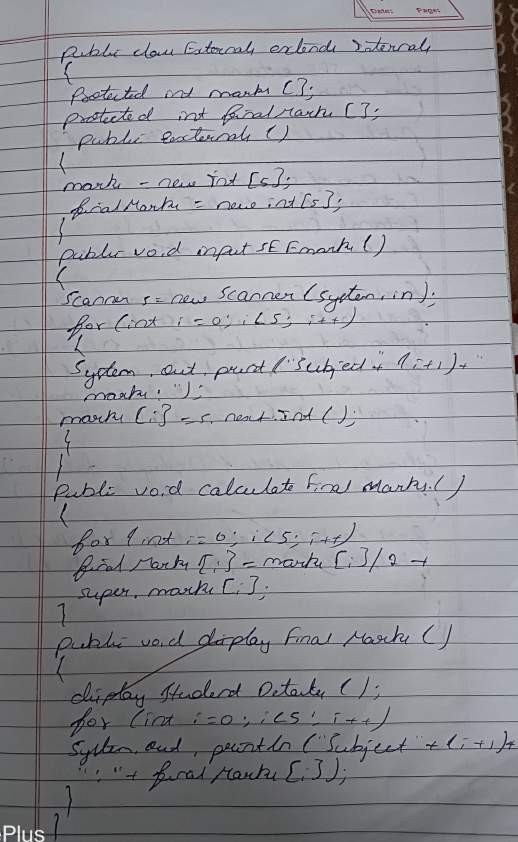 Date: Page:
Public class Externals extends Internals
{
Protected int marks [];
protected int finalMarks [];
Public externals ()
{
marks = new int [5];
finalMarks = new int [5];
}
public void input SEEmarks ()
{
Scanner s = new Scanner (System.in);
for (int i = 0; i<5; i++)
{
System.out.print ("Subject" + (i+1) + "
marks: ");
marks [i] = s.next.Int ();
}
}
Public void calculate Final Marks ()
{
for (int i = 0; i<5; i++)
final Marks [i] = marks [i] / 2 +
super.marks [i];
}
Public void display Final Marks ()
{
display Student Details ();
for (int i=0; i<5; i++)
System.out.println ("Subject" + (i+1) +
": " + final Marks [i]);
}
}
Plus